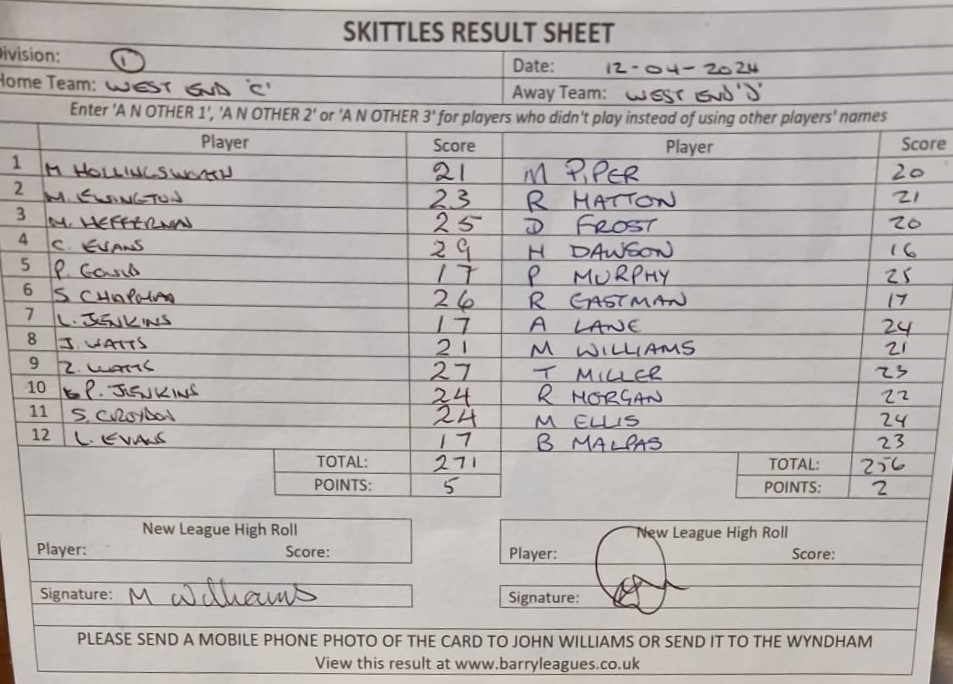 SKITTLES RESULT SHEET
Division: 1 Date: 12-04-2024
Home Team: WEST END 'C' Away Team: WEST END 'J'
Enter 'A N OTHER 1', 'A N OTHER 2' or 'A N OTHER 3' for players who didn't play instead of using other players' names
Player Score Player Score
1 M HOLLINGSWORTH 21 M PIPER 20
2 M. EWINGTON 23 R HATTON 21
3 M. HEFFERNAN 25 D FROST 20
4 C. EVANS 29 H DAWSON 16
5 P. GOULD 17 P MURPHY 25
6 S CHAPMAN 26 R EASTMAN 17
7 L. JENKINS 17 A LANE 24
8 J. WATTS 21 M WILLIAMS 21
9 Z. WATTS 27 T MILLER 23
10 P. JENKINS 24 R MORGAN 22
11 S. CROYDON 24 M ELLIS 24
12 L. EVANS 17 B MALPAS 23
TOTAL: 271 TOTAL: 256
POINTS: 5 POINTS: 2
New League High Roll New League High Roll
Player: Score: Player: Score:
Signature: M Williams Signature:
PLEASE SEND A MOBILE PHONE PHOTO OF THE CARD TO JOHN WILLIAMS OR SEND IT TO THE WYNDHAM
View this result at www.barryleagues.co.uk